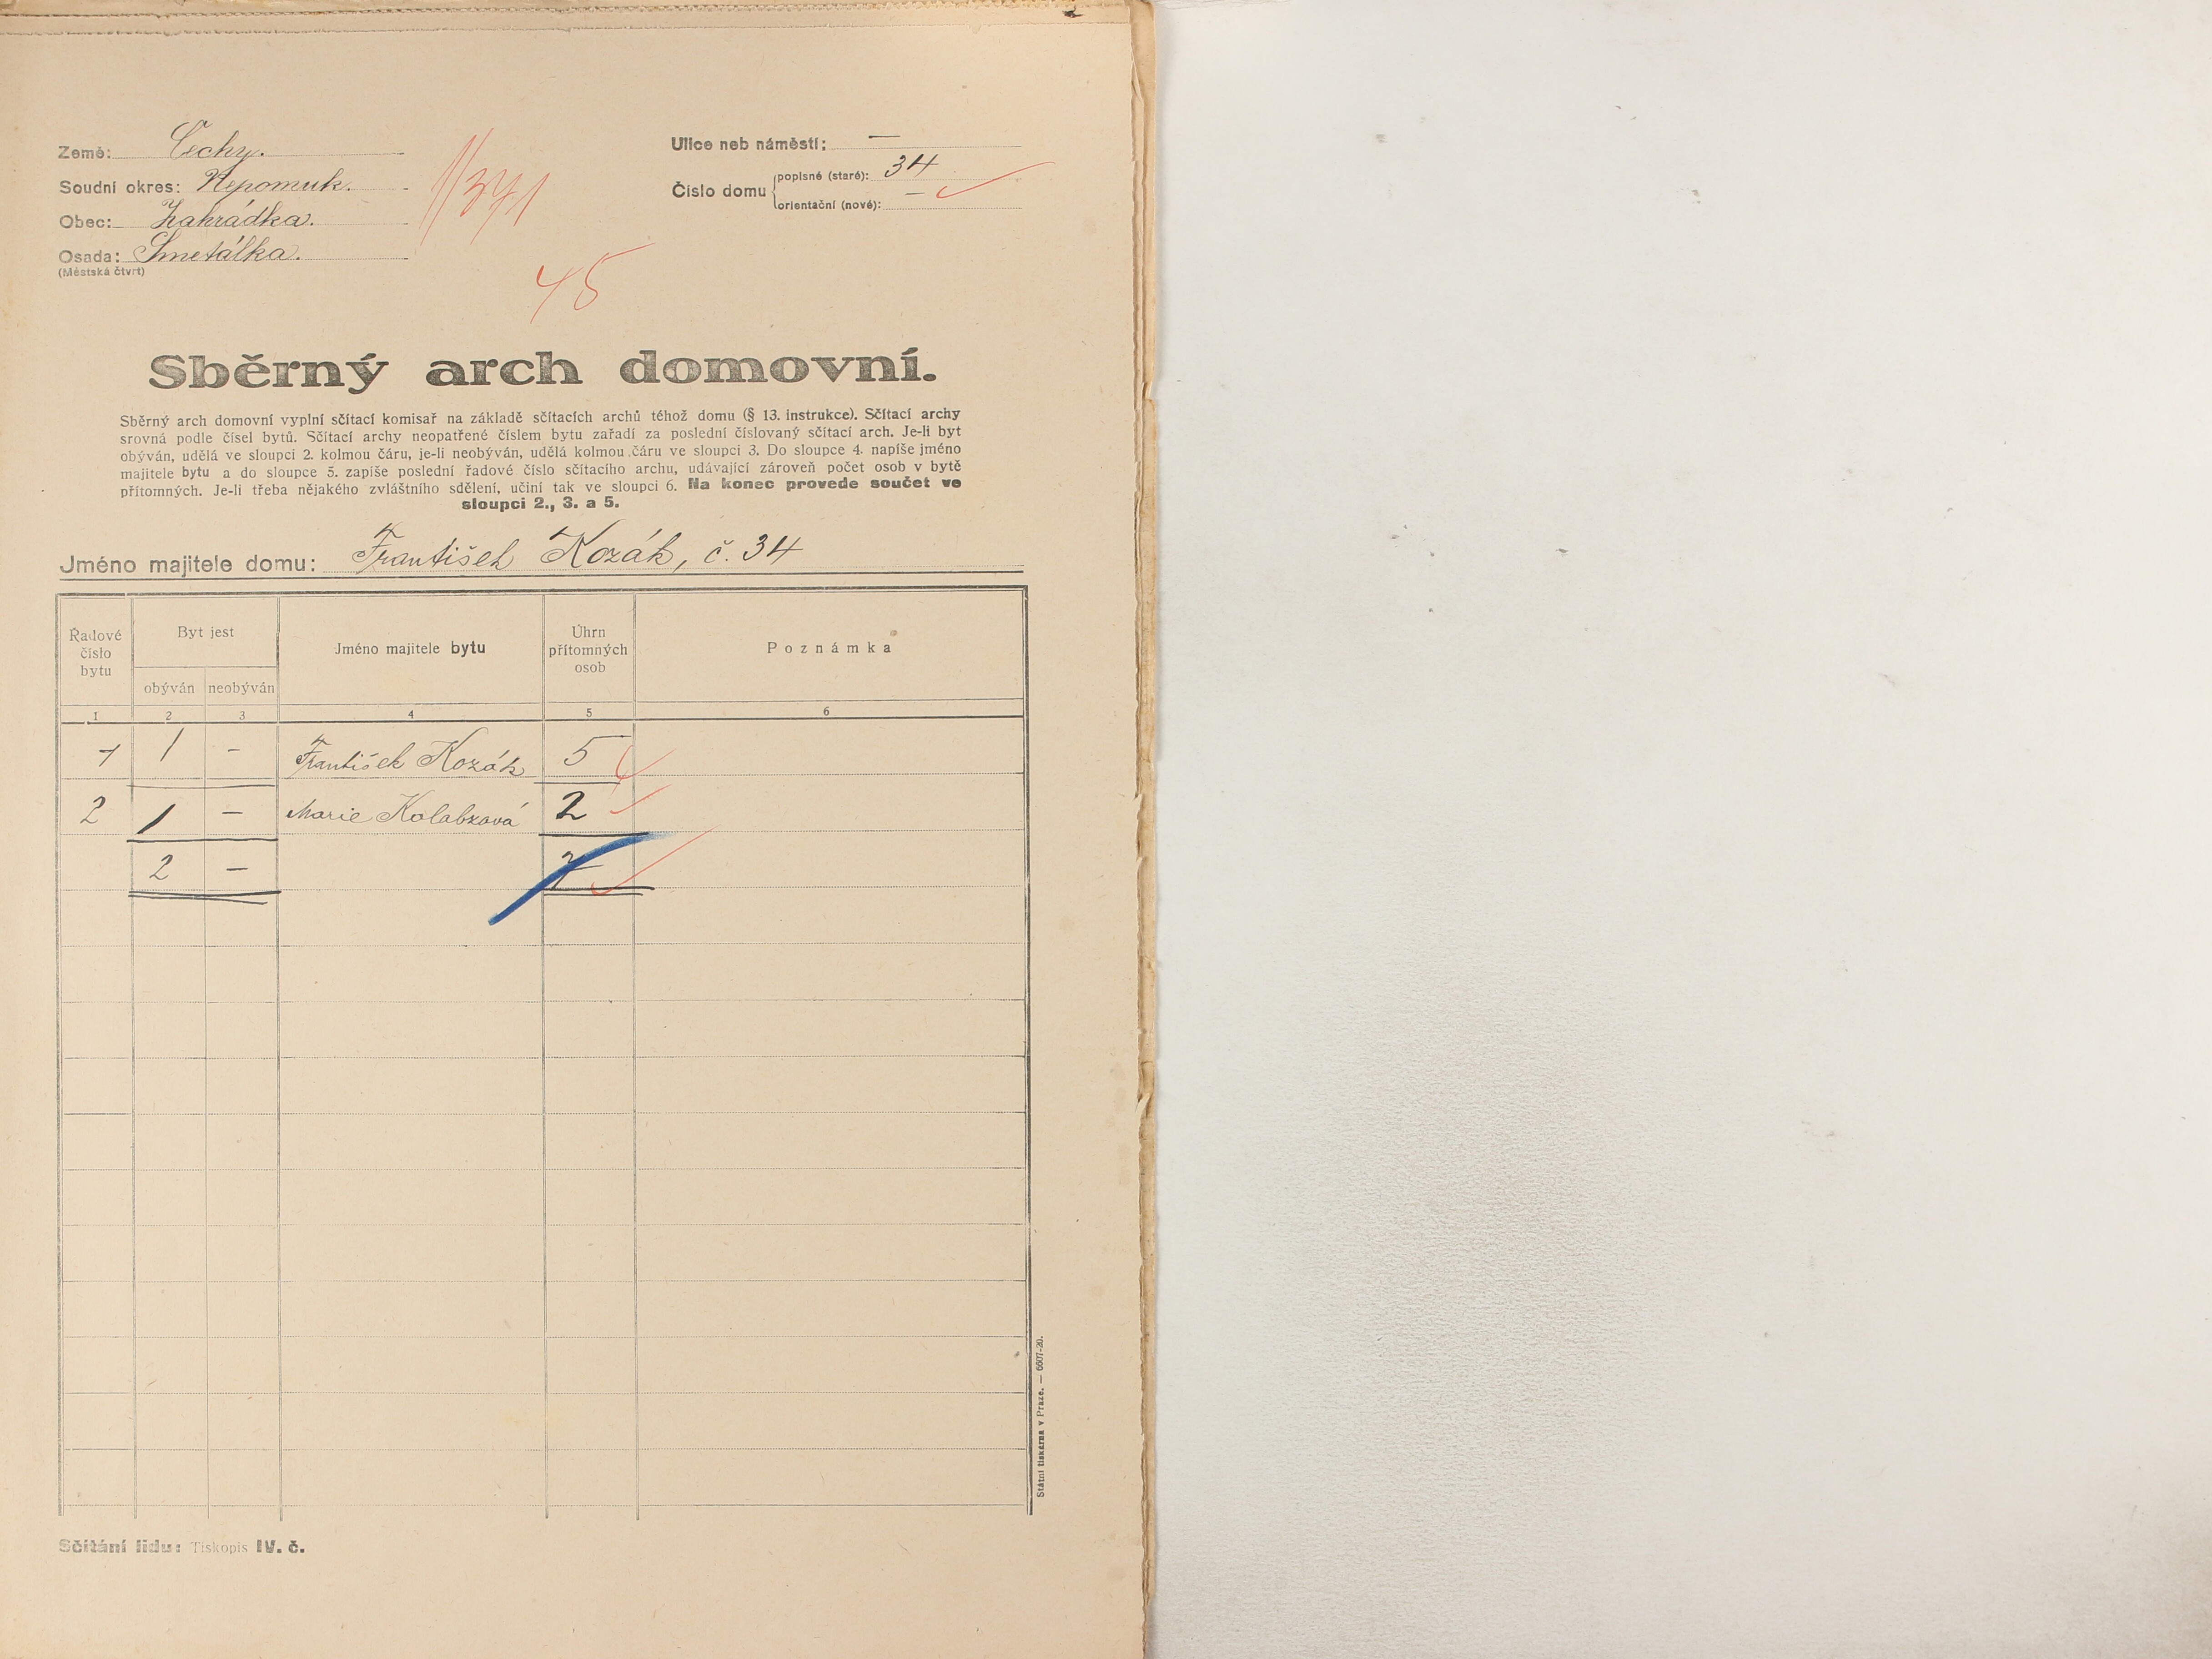 Země: Čechy.
Soudní okres: Nepomuk.
Obec: Zahrádka.
Osada: Smetálka.
(Městská čtvrt)
Ulice neb náměstí: —
Číslo domu
popisné (staré): 34
orientační (nové): —
45
Sběrný arch domovní.
Sběrný arch domovní vyplní sčítací komisař na základě sčítacích archů téhož domu (§ 13. instrukce). Sčítací archy
srovná podle čísel bytů. Sčítací archy neopatřené číslem bytu zařadí za poslední číslovaný sčítací arch. Je-li byt
obýván, udělá ve sloupci 2. kolmou čáru, je-li neobýván, udělá kolmou čáru ve sloupci 3. Do sloupce 4. napíše jméno
majitele bytu a do sloupce 5. zapíše poslední řadové číslo sčítacího archu, udávající zároveň počet osob v bytě
přítomných. Je-li třeba nějakého zvláštního sdělení, učiní tak ve sloupci 6. Na konec provede součet ve
sloupci 2., 3. a 5.
Jméno majitele domu: František Kozák, č. 34
Řadové číslo bytu
Byt jest
obýván neobýván
Jméno majitele bytu
Úhrn přítomných osob
Poznámka
1 2 3 4 5 6
1 1 - František Kozák 5
2 1 - Marie Kolabzová 2
2 - 7
Státní tiskárna v Praze. — 6607-20.
Sčítání lidu: Tiskopis IV. č.